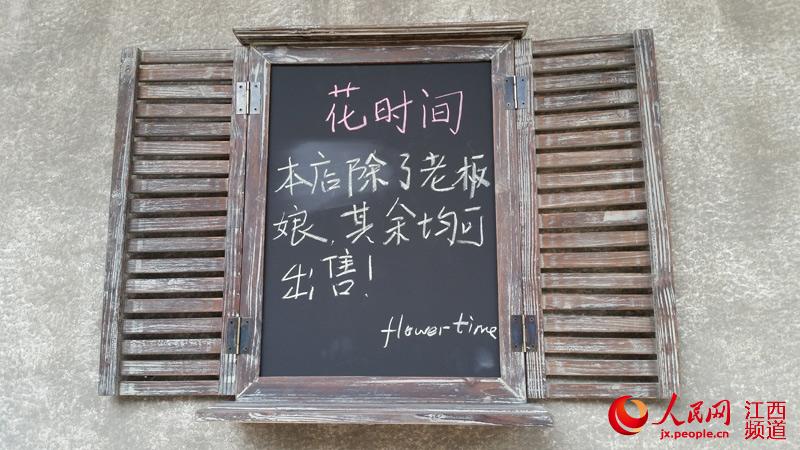 花时间
本店除了老板
娘,其余均可
出售!
flower time
人民网 江西
jx.people.cn 频道